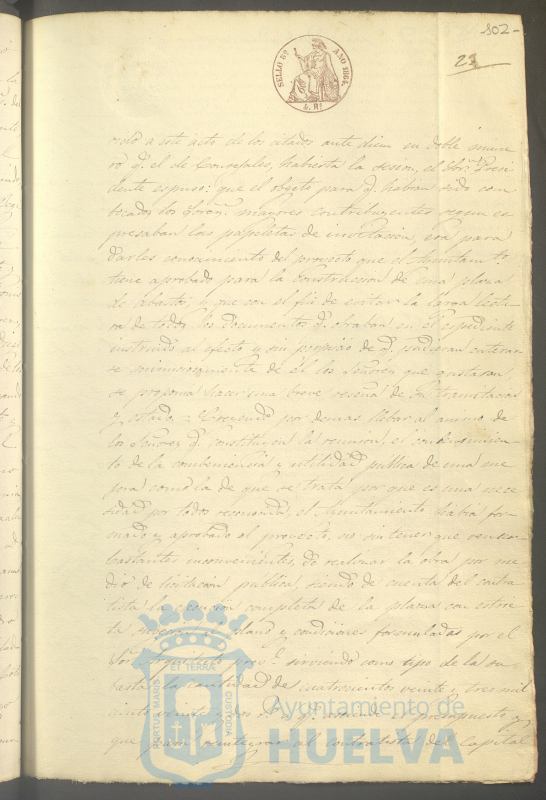 102-
23
SELLO 8º AÑO 1864.
4. Rs
á este acto de los citados ante diem en doble núme-
ro q.e el de Concejales, habierta la sesion, el Sor. Presi-
dente espuso: que el objeto para q.e habian sido con-
bocados los mayores contribuyentes segun es-
presaban las papeletas de invitacion, era para
darles conocimiento del proyecto que el Ayuntam.to
tiene aprobado para la construccion de una plaza
de abastos, y que con el fin de evitar la larga lectu-
ra de todos los documentos q.e obraban en el espediente
instruido al efecto y sin perjuicio de q.e pudieran enterar-
se minuciosamente de él los Señores que gustaran,
se proponia hacer una breve reseña de su tramitacion
y estado. = Creyendo por demas llebar al animo de
los Señores q.e constituian la reunion, el conbencimien-
to de la combeniencia y utilidad publica de una me-
jora como la de que se trata por que es una nece-
sidad por todos reconocida, el Ayuntamiento habia for-
mado y aprobado el proyecto, no sin tener que vencer
bastantes inconvenientes, de realizar la obra por me-
dio de licitacion publica, siendo de cuenta del contra-
tista la ejecucion completa de la plaza con estric-
ta al plano y condiciones formuladas por el
Sor. Arquitecto prov.l sirviendo como tipo de la su-
basta la cantidad de cuatrocientos veinte y tres mil
ciento veinte á q.e asciende el presupuesto y
que para reintegrar al contratista del capital
PORTUS MARIS ET TERRAE CUSTODIA
Ayuntamiento de
HUELVA